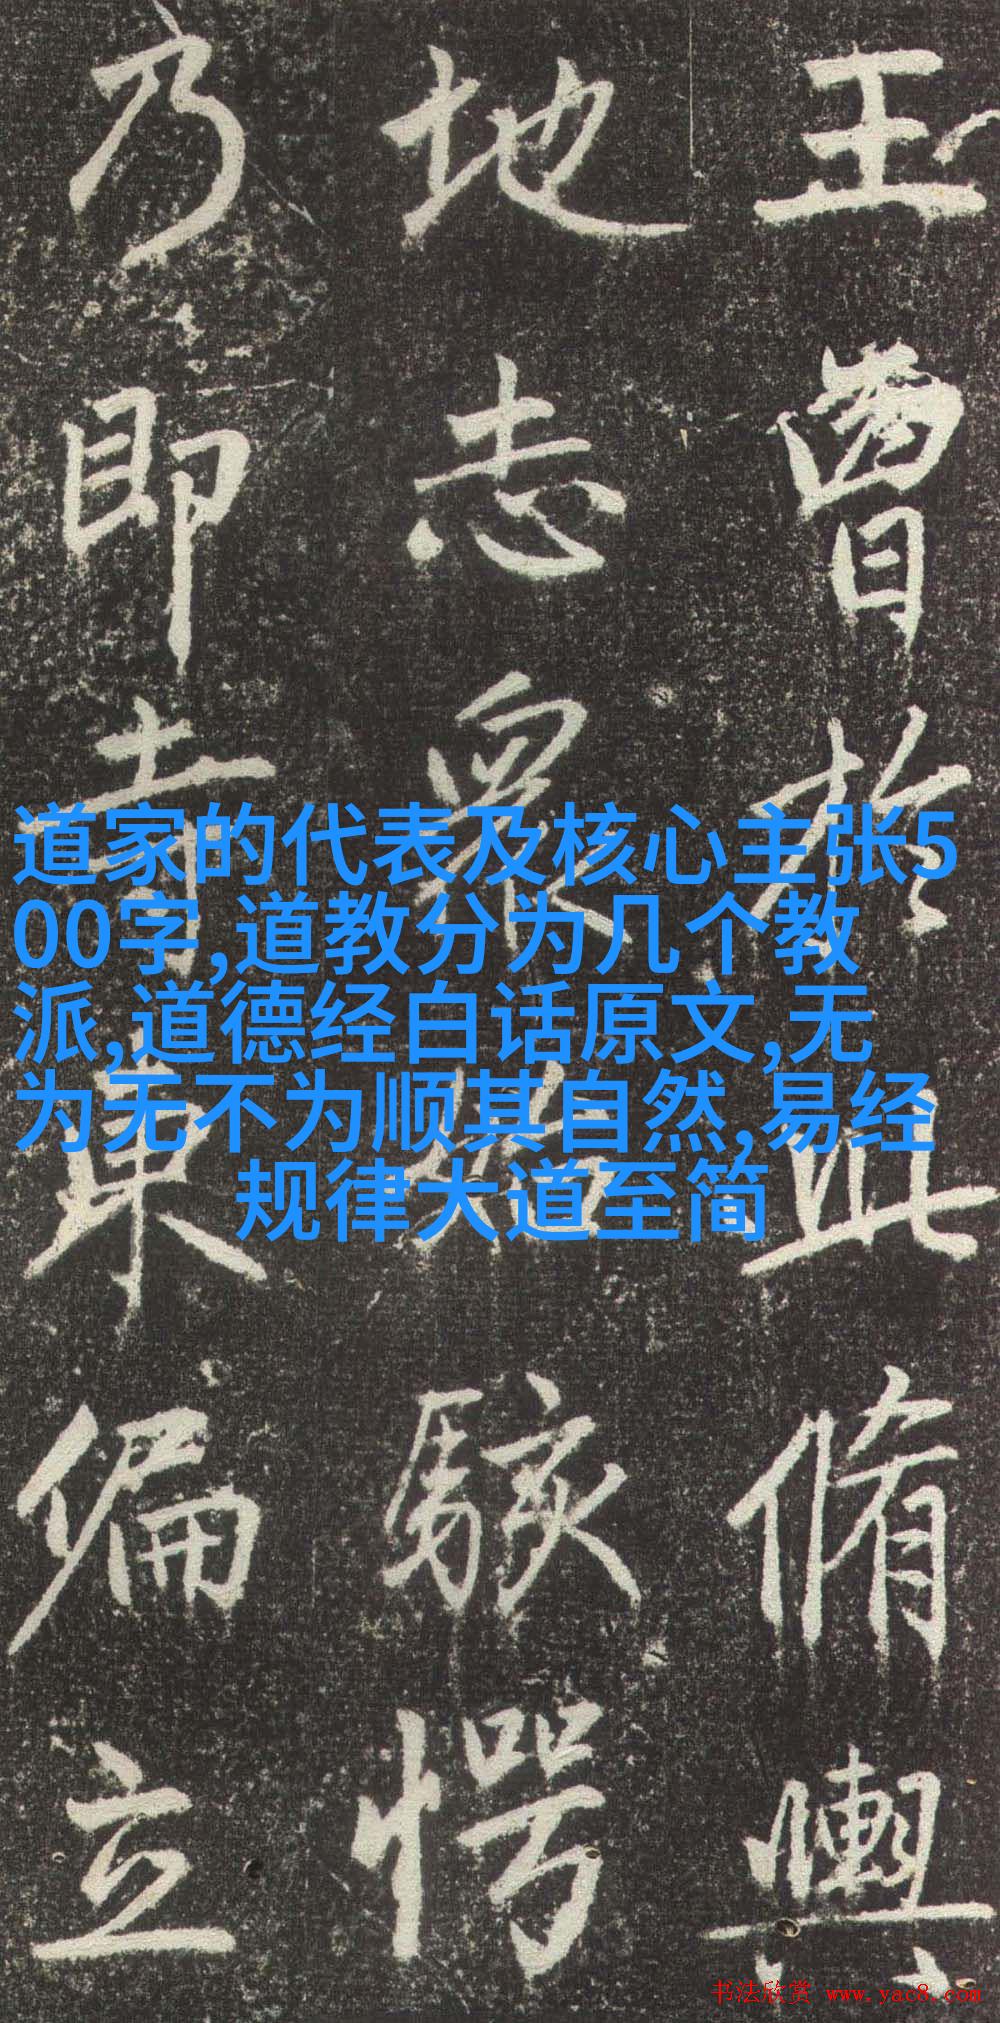 王曾於此脩
地志眾駭愕
乃即東偏立
道家的代表及核心主张5
00字,道教分为几个教
派,道德经白话原文,无
为无不为顺其自然,易经
规律大道至简
书法欣赏 www.yac8.com